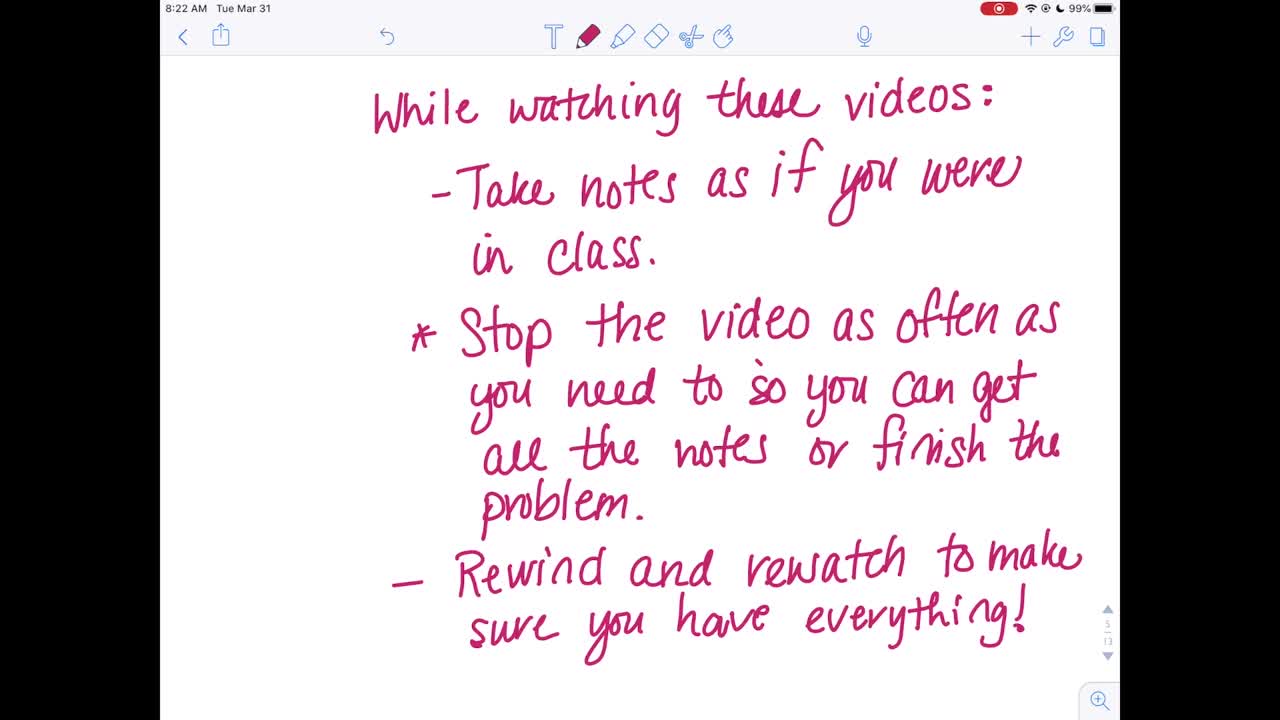 8:22 AM Tue Mar 31 99%
While watching these videos:
- Take notes as if you were
in class.
* Stop the video as often as
you need to so you can get
all the notes or finish the
problem.
- Rewind and rewatch to make
sure you have everything!
5
13